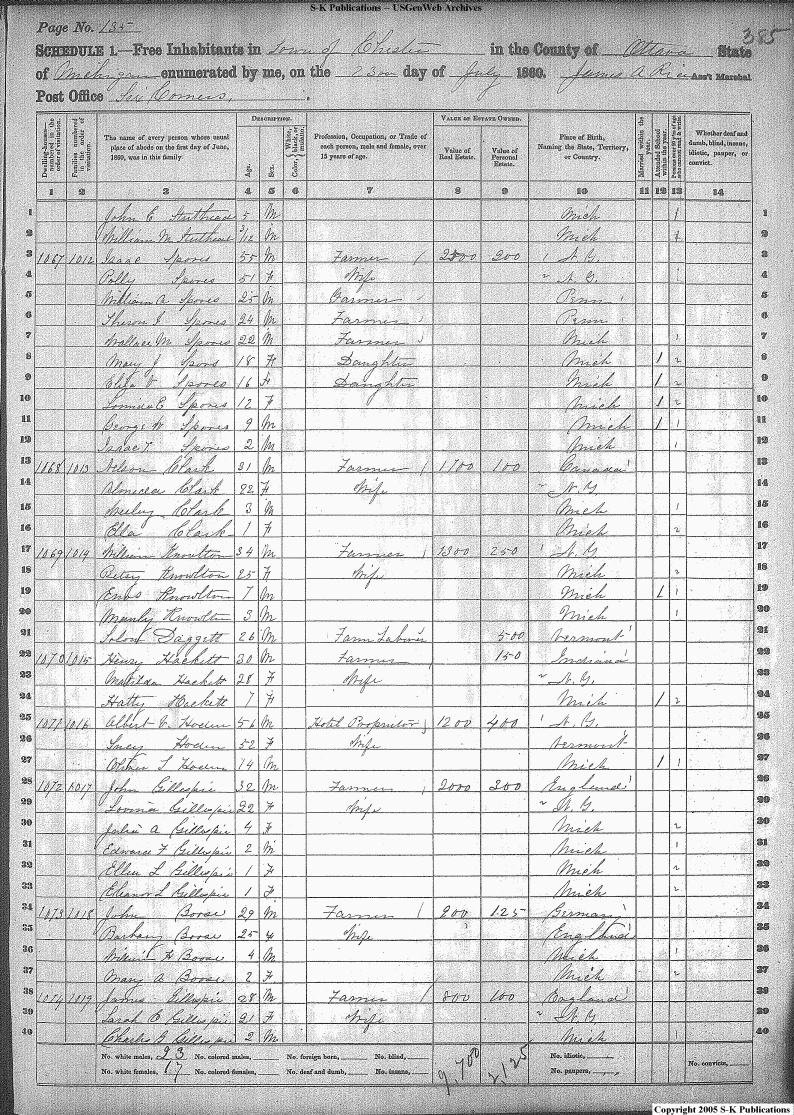 S-K Publications – USGenWeb Archives
Page No. 135
385
SCHEDULE 1.—Free Inhabitants in Town of Chester in the County of Ottawa State
of Michigan enumerated by me, on the 23 day of July 1860. James A Rice Ass't Marshal
Post Office Six Corners.
DESCRIPTION. VALUE OF ESTATE OWNED.
Dwelling-houses—numbered in the order of visitation. Families numbered in the order of visitation. The name of every person whose usual place of abode on the first day of June, 1860, was in this family Age. Sex. Color, White, black, or mulatto. Profession, Occupation, or Trade of each person, male and female, over 15 years of age. Value of Real Estate. Value of Personal Estate. Place of Birth, Naming the State, Territory, or Country. Married within the year. Attended School within the year. Persons over 20 y'rs of age who cannot read & write. Whether deaf and dumb, blind, insane, idiotic, pauper, or convict.
1 2 3 4 5 6 7 8 9 10 11 12 13 14
1 John E 5 M Mich 1 1
2 William M 3/12 M Mich 1 2
3 1067 1012 Isaac Spores 55 M Farmer 2500 200 N.Y. 3
4 Polly Spores 51 F Wife " N.Y. 4
5 William A Spores 25 M Farmer Penn 5
6 Theron J Spores 24 M Farmer Penn 6
7 Wallace M Spores 22 M Farmer Mich 1 7
8 Mary J Spors 18 F Daughter Mich 1 2 8
9 Eliza V Spores 16 F Daughter Mich 1 2 9
10 E Spores 12 F Mich 1 2 10
11 George W Spores 9 M Mich 1 1 11
12 Isaac T Spores 2 M Mich 1 12
13 1068 1013 Nelson Clark 31 M Farmer 1700 100 Canada 13
14 Clark 22 F Wife " N.Y. 14
15 Clark 3 M Mich 1 15
16 Ella Clark 1 F Mich 2 16
17 1069 1014 William Knowlton 34 M Farmer 1300 250 N.Y. 17
18 Betsy Knowlton 25 F Wife Mich 2 18
19 Enos Knowlton 7 M Mich 1 1 19
20 Manly Knowlton 3 M Mich 1 20
21 Solon Daggett 26 M Farm Labour 500 Vermont 21
22 1070 1015 Henry Hackett 30 M Farmer 150 Indiana 22
23 Matilda Hackett 28 F Wife " N.Y. 23
24 Hatty Hackett 7 F Mich 1 2 24
25 1071 1016 Albert V Hoden 56 M Hotel Proprietor 1200 400 N.Y. 25
26 Lucy Hoden 52 F Wife Vermont 26
27 Oliver L Hoden 14 M Mich 1 1 27
28 1072 1017 John Gillespie 32 M Farmer 2000 300 England 28
29 Lovina Gillespie 22 F Wife " N.Y. 29
30 Julia A Gillespie 4 F Mich 2 30
31 Edward F Gillespie 2 M Mich 1 31
32 Ellen L Gillespie 1 F Mich 2 32
33 Eleanor L Gillespie 1 F Mich 2 33
34 1073 1018 John Boose 29 M Farmer 200 125 Germany 34
35 Barbary Boose 25 F Wife England 35
36 William H Boose 4 M Mich 1 36
37 Mary A Boose 2 F Mich 2 37
38 1074 1019 James Gillespie 28 M Farmer 800 100 England 38
39 Sarah E Gillespie 21 F Wife " N.Y. 39
40 Charles A Gillespie 2 M Mich 1 40
No. white males, 23 No. colored males, No. foreign born, No. blind, 9,700 2,125 No. idiotic, No. convicts,
No. white females, 17 No. colored females, No. deaf and dumb, No. insane, No. paupers,
Copyright 2005 S-K Publications